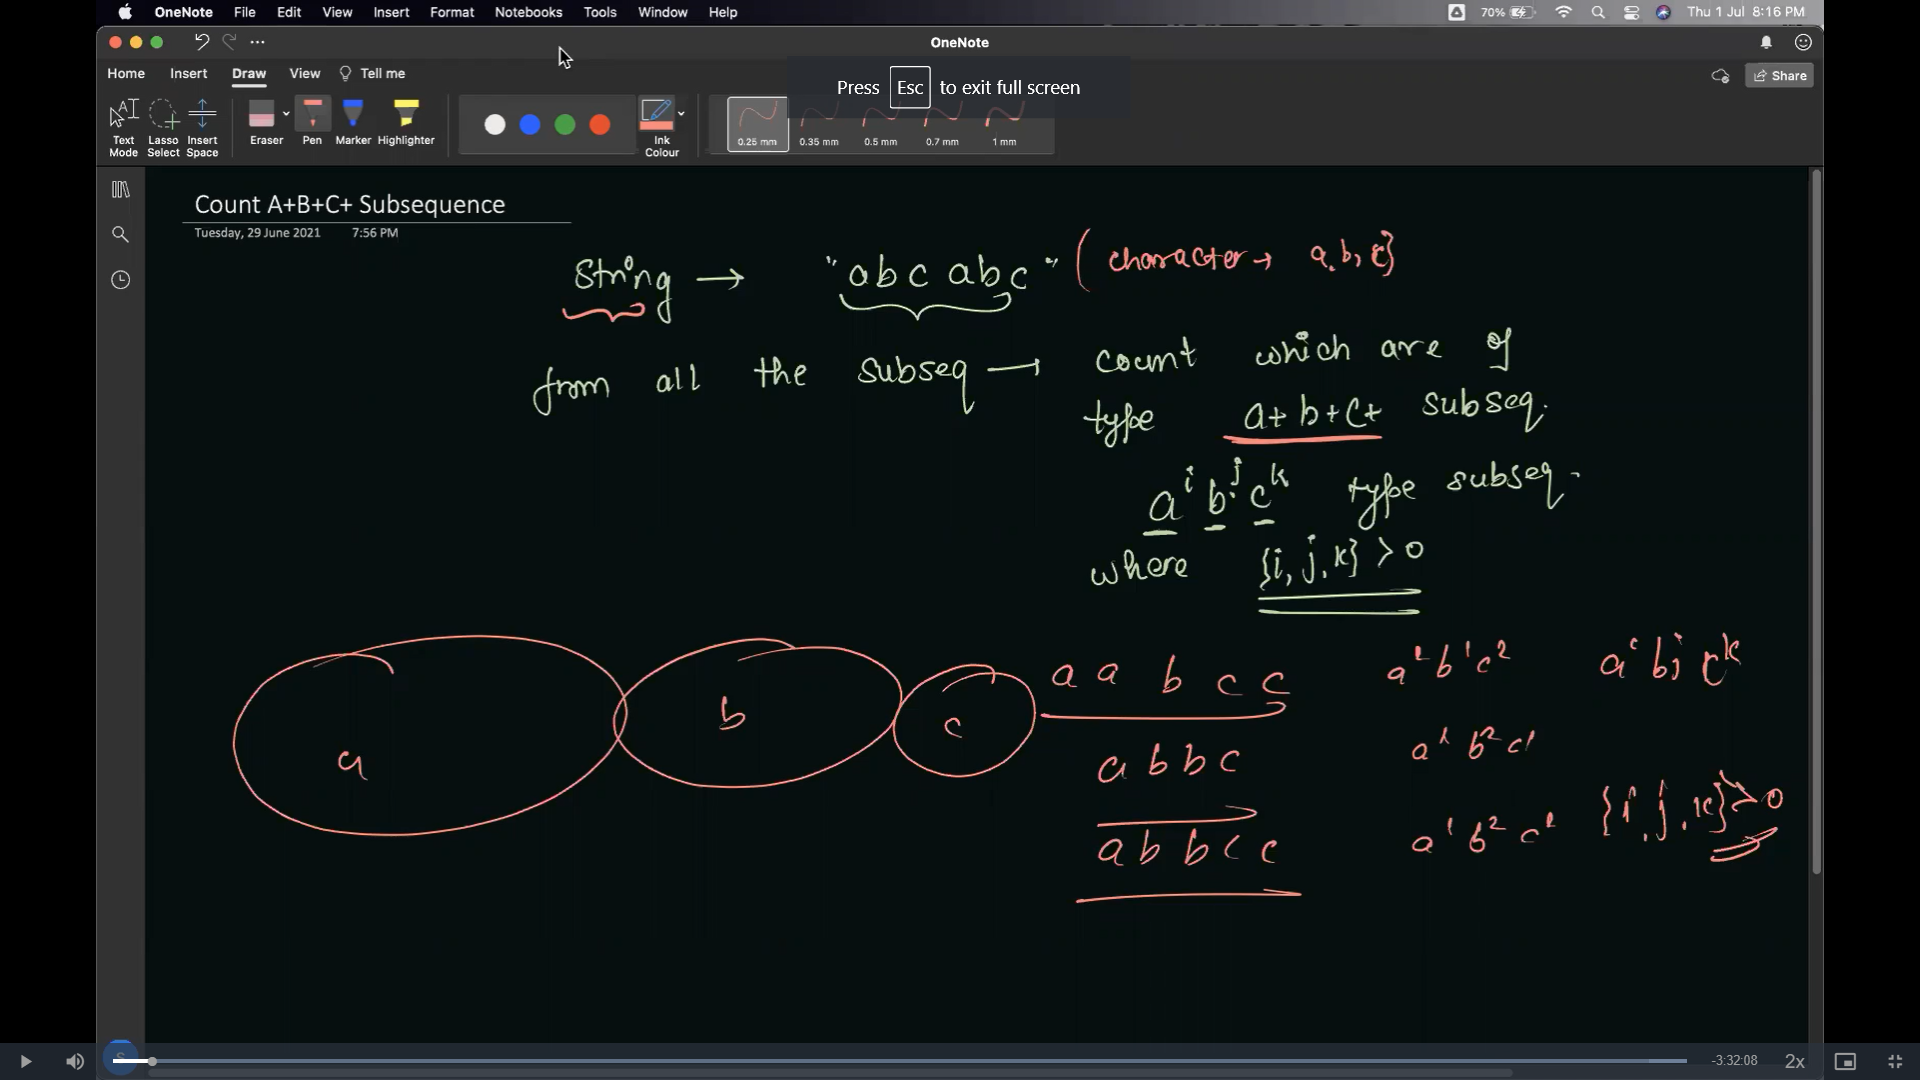 OneNote File Edit View Insert Format Notebooks Tools Window Help 70% Thu 1 Jul 8:16 PM
OneNote
Home Insert Draw View Tell me Share
Press Esc to exit full screen
Text Mode Lasso Select Insert Space Eraser Pen Marker Highlighter Ink Colour 0.25 mm 0.35 mm 0.5 mm 0.7 mm 1 mm
Count A+B+C+ Subsequence
Tuesday, 29 June 2021 7:56 PM
String → "abcabc" (character → a, b, c}
from all the subseq → count which are of
type a+b+c+ subseq.
aⁱ bʲ cᵏ type subseq.
where {i, j, k} > 0
a b c
a a b c c a² b¹ c² aⁱ bʲ cᵏ
a b b c a¹ b² c¹
a b b c c a¹ b² c² {i, j, k} > 0
-3:32:08 2x